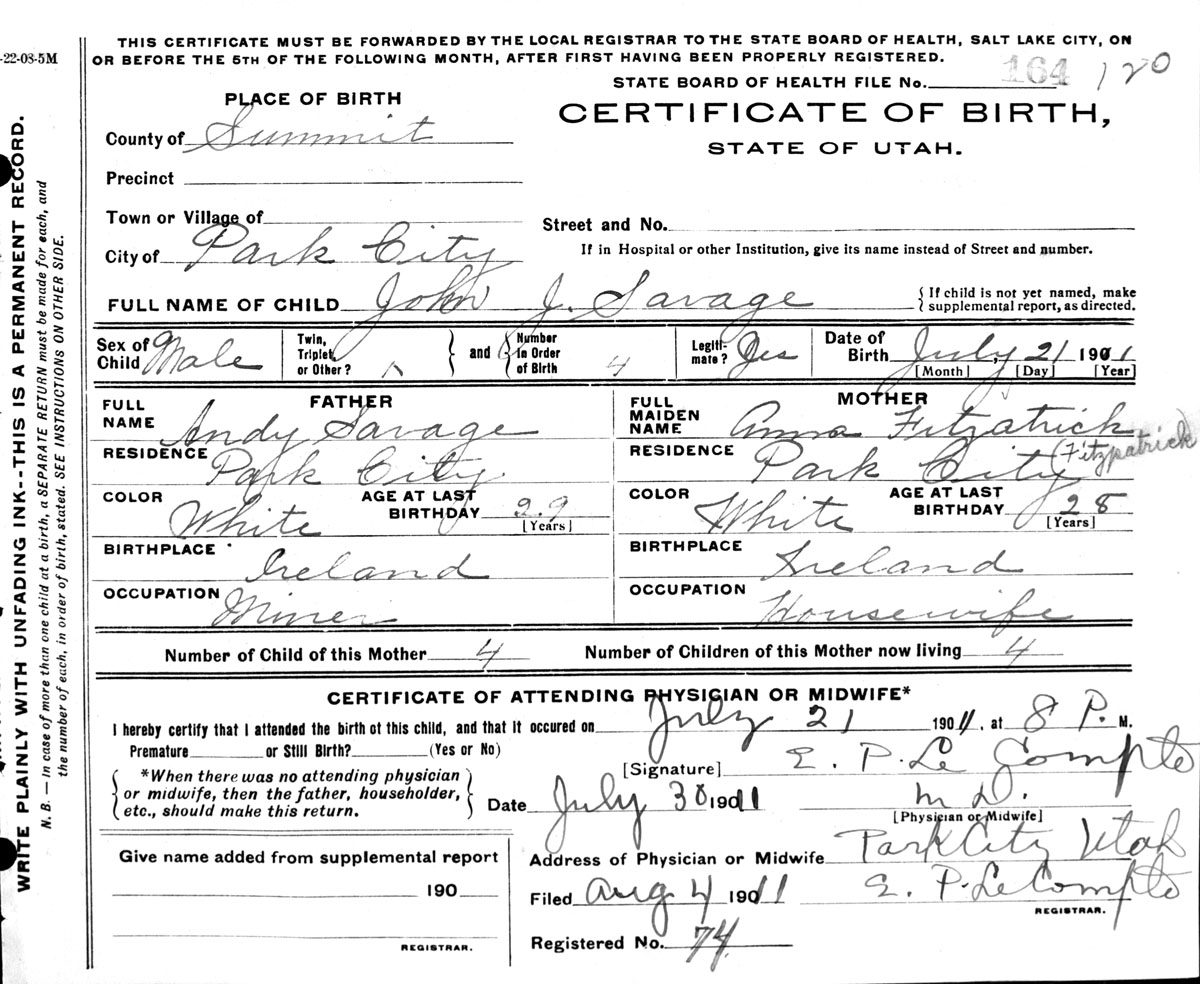 -22-08-5M
THIS CERTIFICATE MUST BE FORWARDED BY THE LOCAL REGISTRAR TO THE STATE BOARD OF HEALTH, SALT LAKE CITY, ON
OR BEFORE THE 5TH OF THE FOLLOWING MONTH, AFTER FIRST HAVING BEEN PROPERLY REGISTERED.
STATE BOARD OF HEALTH FILE No. 164 120
PLACE OF BIRTH
CERTIFICATE OF BIRTH,
STATE OF UTAH.
County of Summit
Precinct
Town or Village of
Street and No.
City of Park City
If in Hospital or other Institution, give its name instead of Street and number.
FULL NAME OF CHILD John J. Savage
{ If child is not yet named, make
supplemental report, as directed.
Sex of Child Male
Twin, Triplet, or Other?
} and { Number in Order of Birth 4
Legiti- mate? Yes
Date of Birth July 21 1901
[Month] [Day] [Year]
FATHER
FULL NAME Andy Savage
RESIDENCE Park City
COLOR White AGE AT LAST BIRTHDAY 29
[Years]
BIRTHPLACE Ireland
OCCUPATION Miner
MOTHER
FULL MAIDEN NAME Anna Fitzatrick
(Fitzpatrick)
RESIDENCE Park City
COLOR White AGE AT LAST BIRTHDAY 28
[Years]
BIRTHPLACE Ireland
OCCUPATION Housewife
Number of Child of this Mother 4 Number of Children of this Mother now living 4
CERTIFICATE OF ATTENDING PHYSICIAN OR MIDWIFE*
I hereby certify that I attended the birth of this child, and that it occured on July 21 19011, at 8 P. M.
Premature or Still Birth? (Yes or No)
[Signature] E. P. Le Compte
{ *When there was no attending physician
or midwife, then the father, householder,
etc., should make this return. }
Date July 30 19011 M D.
[Physician or Midwife]
Address of Physician or Midwife Park City Utah
Filed Aug 4 19011 E. P. LeCompte
REGISTRAR.
Registered No. 74
Give name added from supplemental report
190
REGISTRAR.
WRITE PLAINLY WITH UNFADING INK--THIS IS A PERMANENT RECORD.
N. B. — In case of more than one child at a birth, a SEPARATE RETURN must be made for each, and
the number of each, in order of birth, stated. SEE INSTRUCTIONS ON OTHER SIDE.